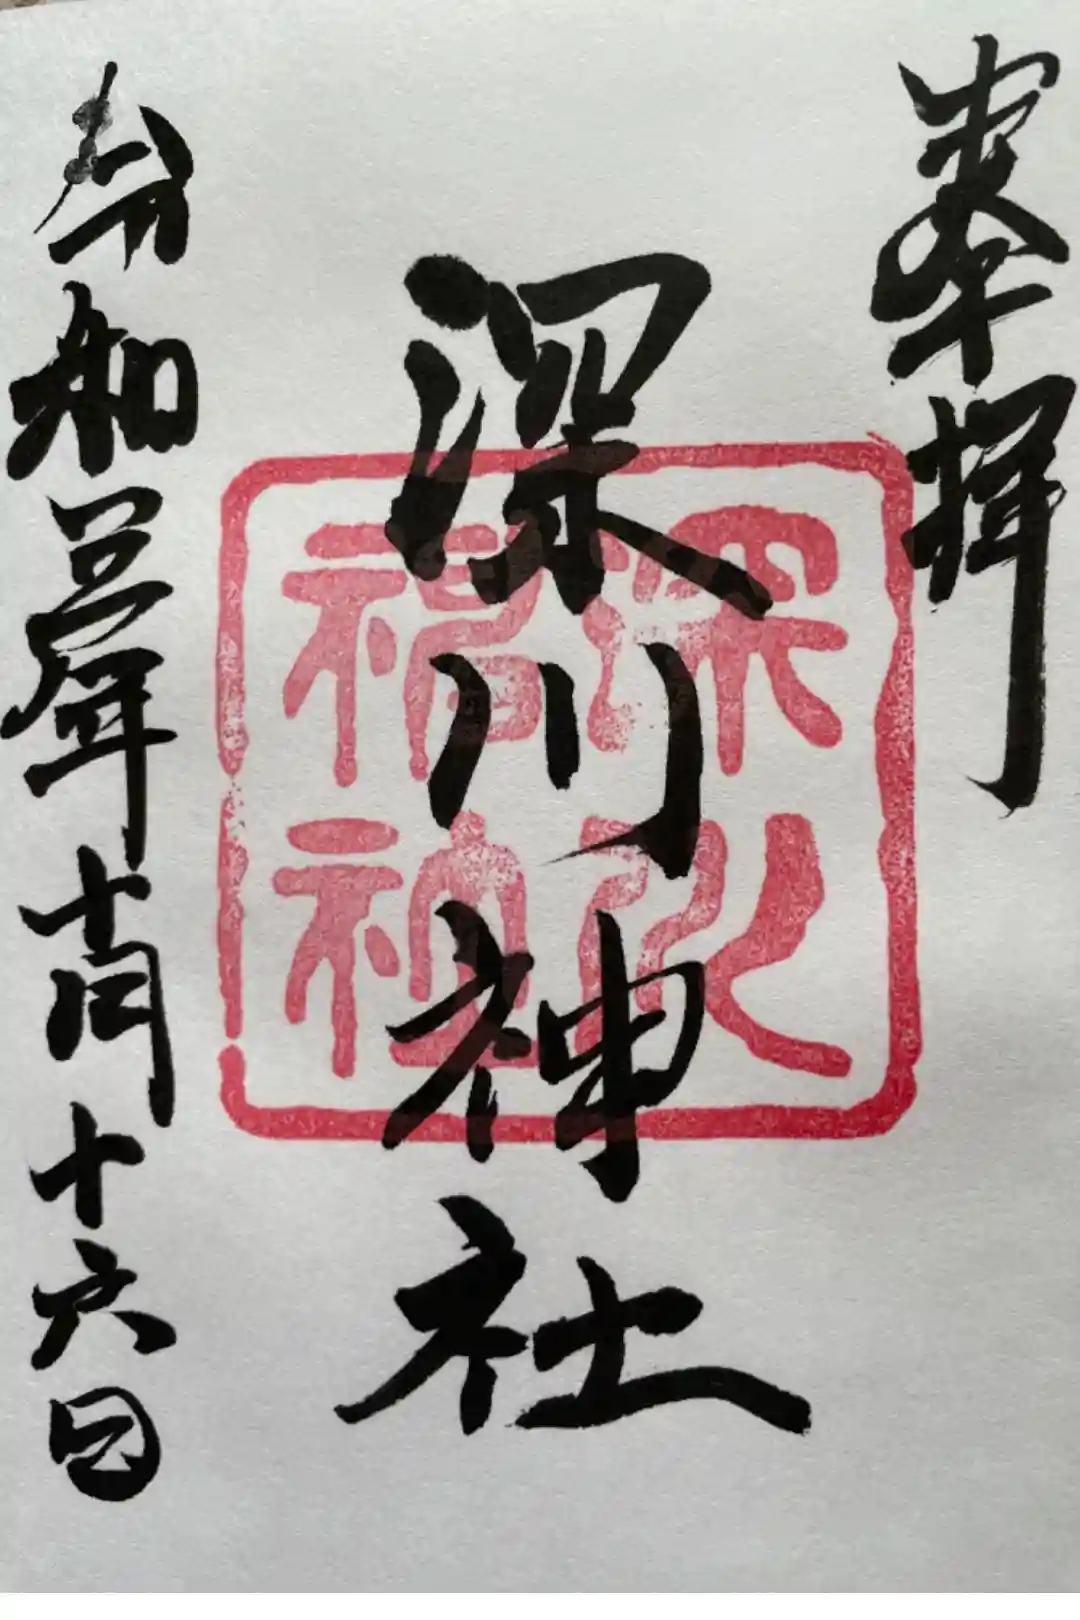 奉拝
深川神社
深川
神社
令和 年十一月十六日